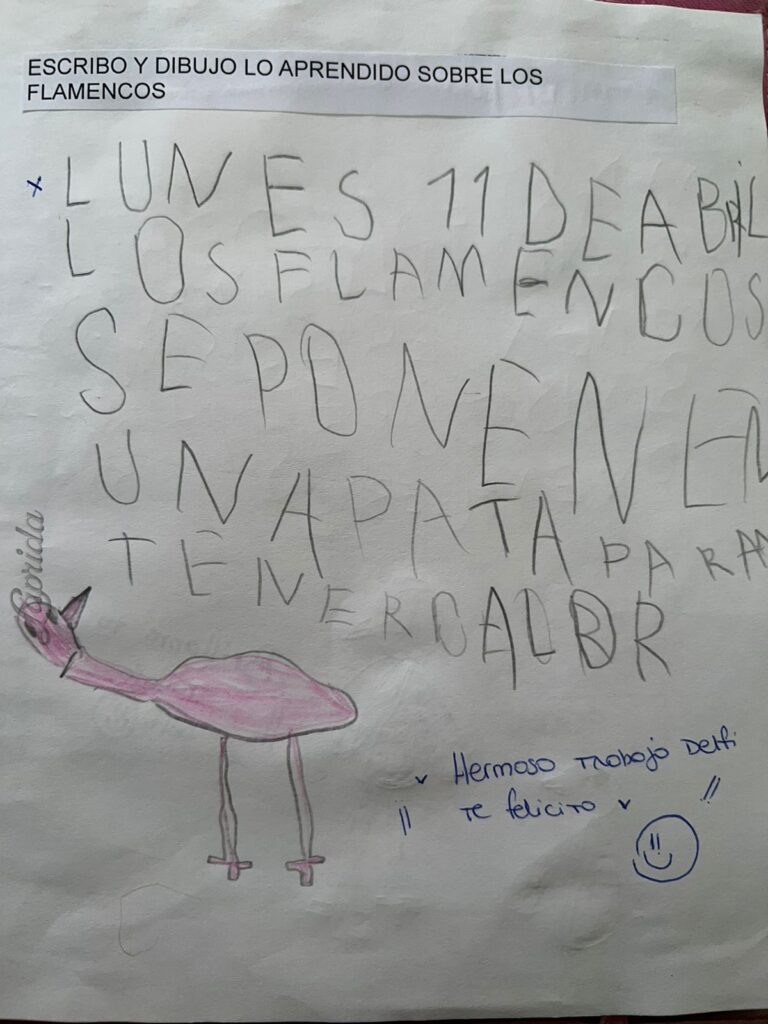 ESCRIBO Y DIBUJO LO APRENDIDO SOBRE LOS
FLAMENCOS
x LUNES 11 DE ABRIL
LOS FLAMENCOS
SE PONEN EN
UNA PATA PARA
TENER CALOR
Hermoso Trabajo Delfi
!! Te felicito !!